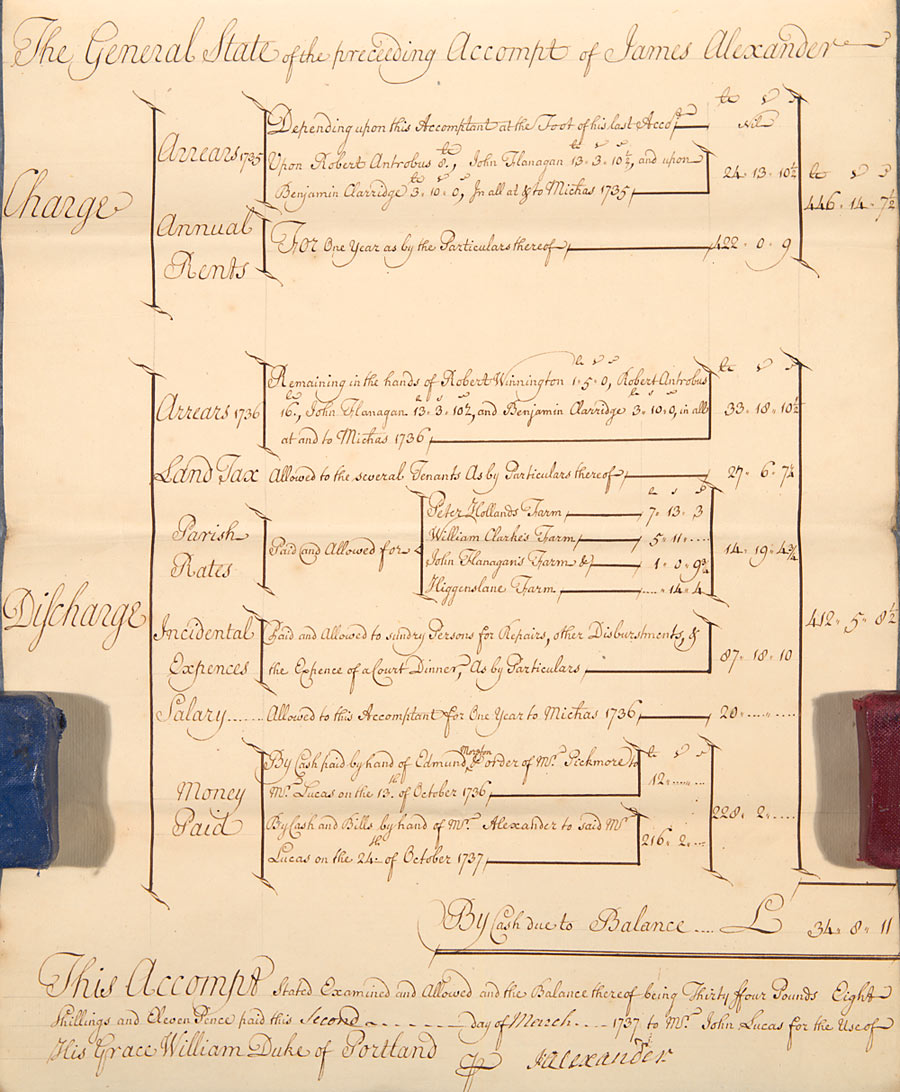 The General State of the preceeding Accompt of James Alexander
Charge
Arrears 1735
Depending upon this Accomptant at the Foot of his last Accot
Nil
Upon Robert Antrobus 8., John Flanagan 13 . 3 . 10½, and upon
Benjamin Clarridge 3 . 10 . 0, In all at & to Michas 1735
24 . 13 . 10½
446 . 14 . 7½
Annual
Rents
For One Year as by the Particulars thereof
422 . 0 . 9
Discharge
Arrears 1736
Remaining in the hands of Robert Winnington 1 . 5 . 0, Robert Antrobus
16., John Flanagan 13 . 3 . 10½, and Benjamin Clarridge 3 . 10 . 0, in all
at and to Michas 1736
33 . 18 . 10½
Land Tax Allowed to the several Tenants As by Particulars thereof 27 . 6 . 7¼
Parish
Rates
Paid and Allowed for
Peter Hollands Farm 7 . 13 . 3
William Clarke's Farm 5 . 11 ....
John Flanagan's Farm & 1 . 0 . 9¾
Higgenslane Farm .... 14 . 4
14 . 19 . 4¾
412 . 5 . 8½
Incidental
Expences
Paid and Allowed to sundry Persons for Repairs, other Disburstments, &
the Expence of a Court Dinner, As by Particulars
87 . 18 . 10
Salary...... Allowed to this Accomptant for One Year to Michas 1736 20 ........
Money
Paid
By Cash paid by hand of Edmund order of Mr. Pickmore to
Mr. Lucas on the 13th. of October 1736
12 ........
By Cash and Bills by hand of Mr. Alexander to said Mr
Lucas on the 24th of October 1737
216 . 2 ....
228 . 2 .....
By Cash due to Balance .... £ 34 . 8 . 11
This Accompt Stated Examined and Allowed and the Balance thereof being Thirty ffour Pounds Eight
Shillings and Eleven Pence paid this Second day of March .... 1737 to Mr. John Lucas for the Use of
His Grace William Duke of Portland
JAlexander